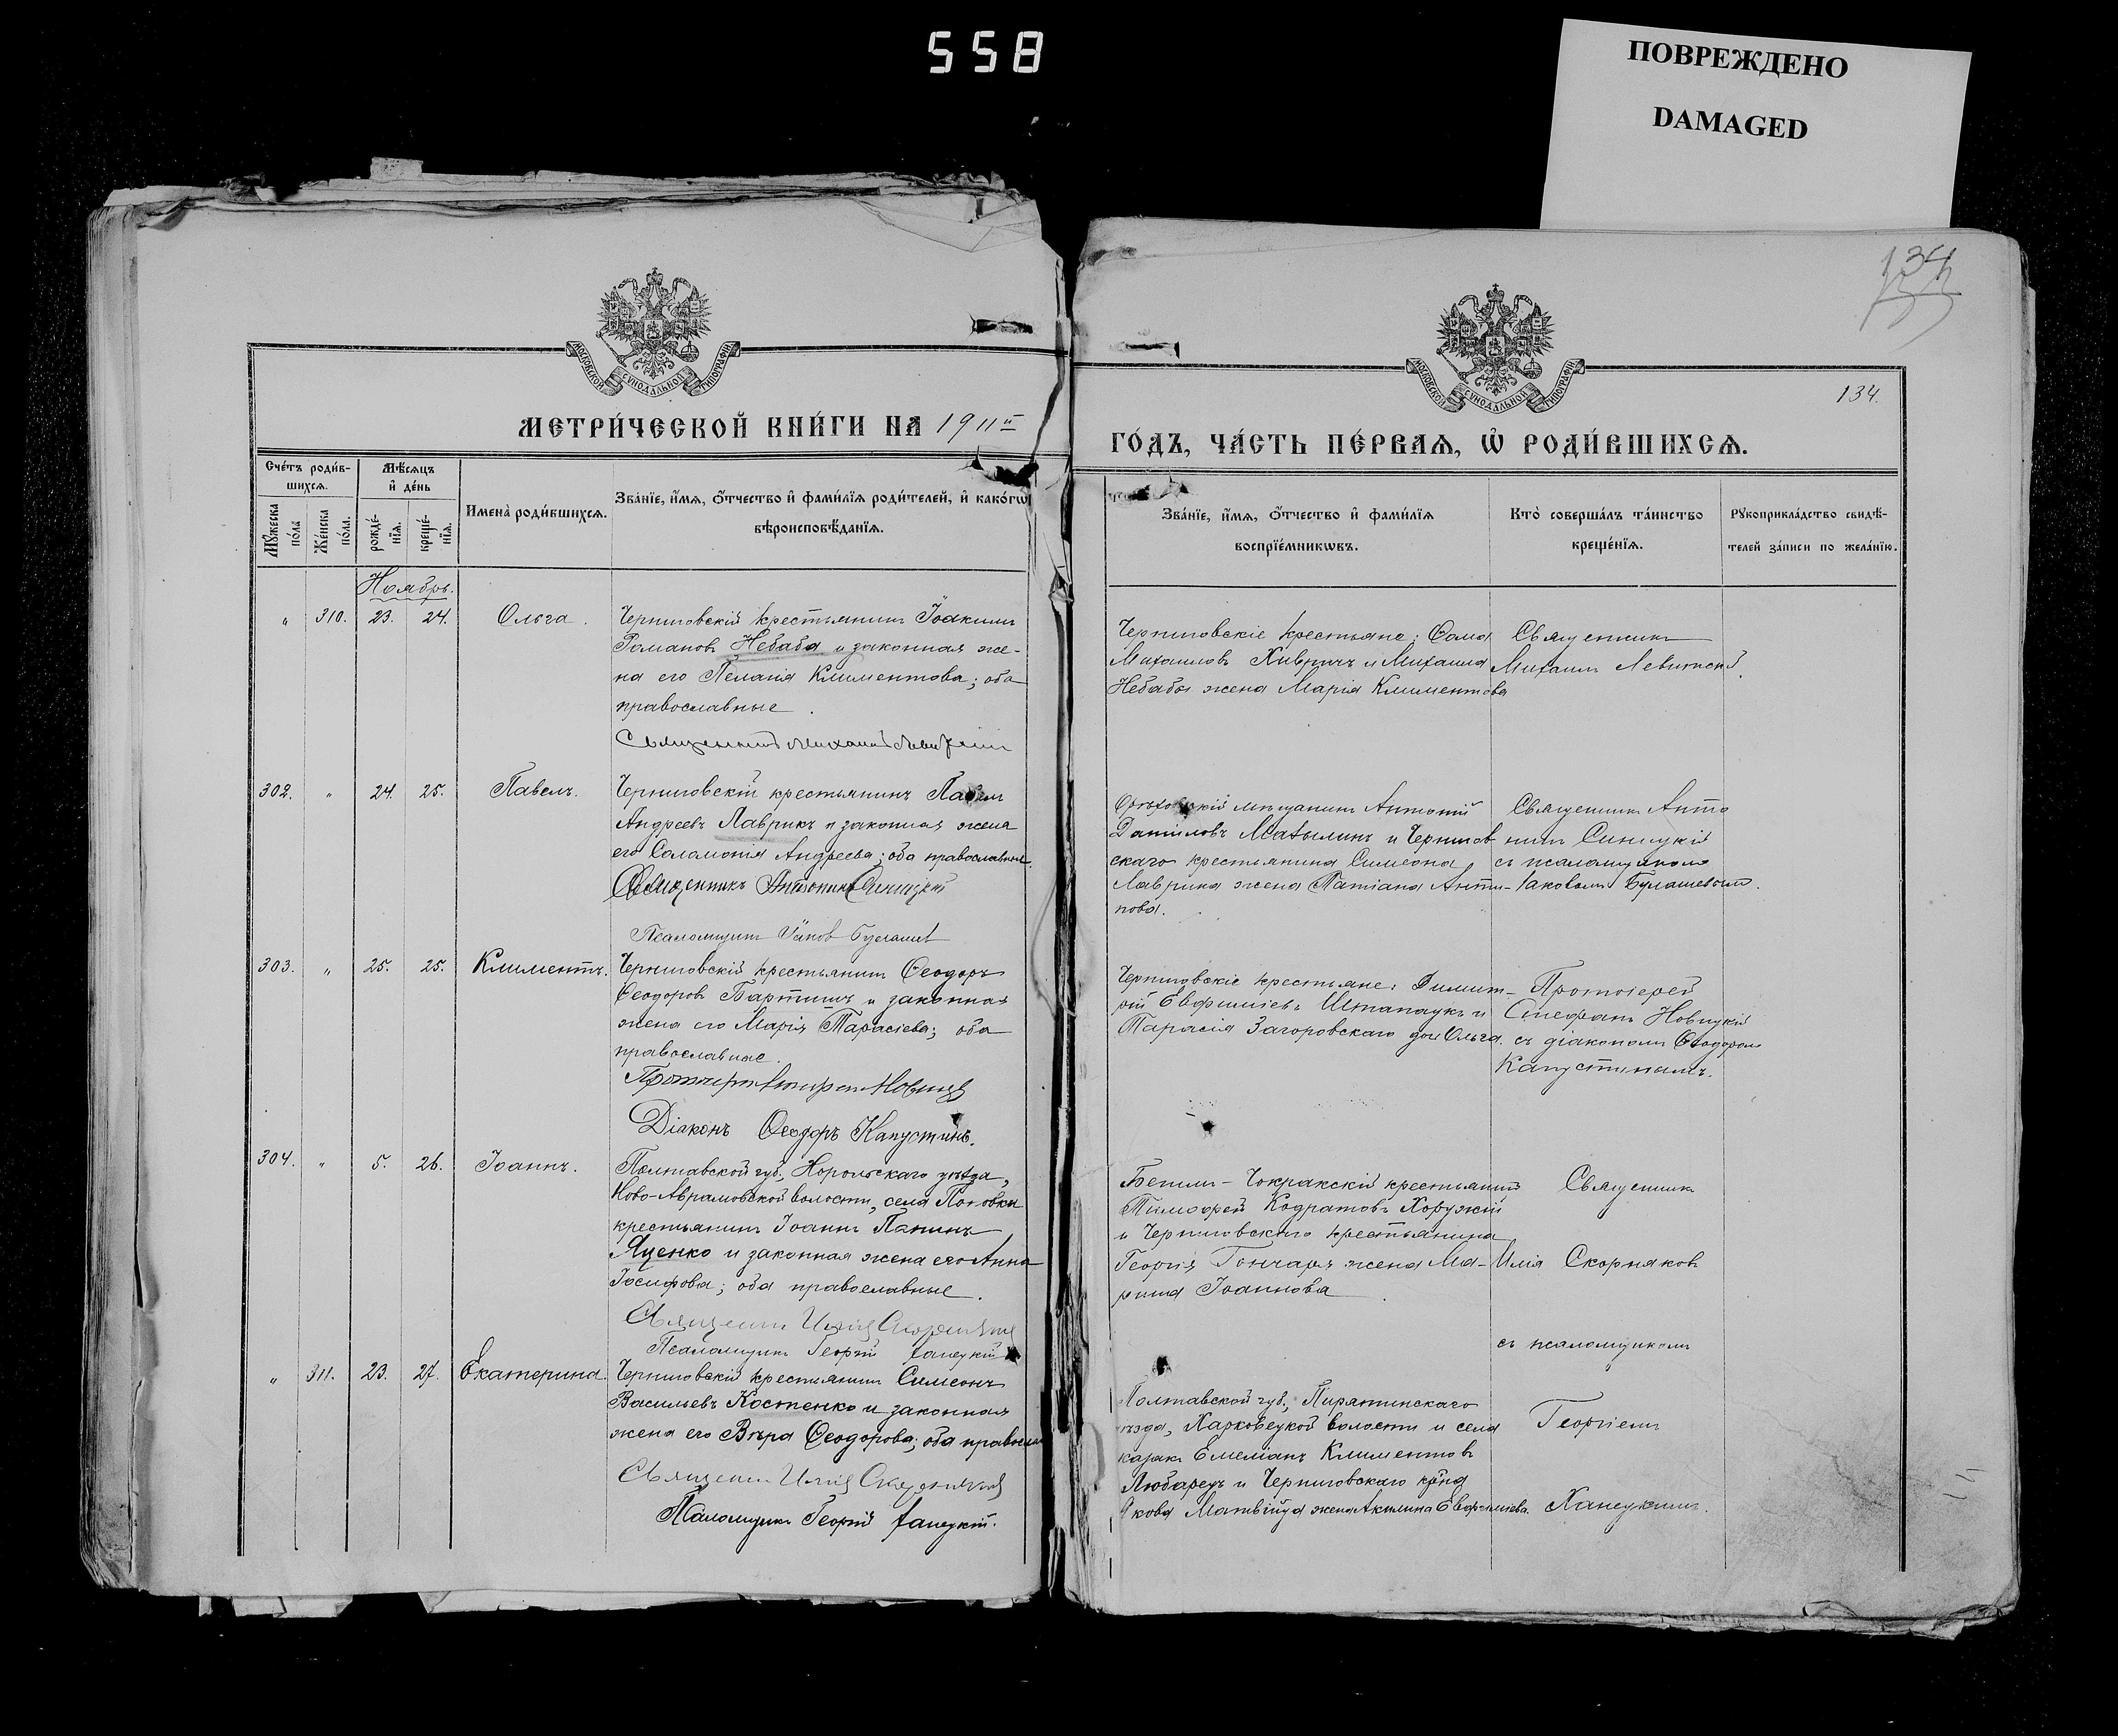 558
ПОВРЕЖДЕНО
DAMAGED
134
134.
МОСКОВСКОЙ СУНОДАЛЬНОЙ ТИПОГРАФІИ
МОСКОВСКОЙ СУНОДАЛЬНОЙ ТИПОГРАФІИ
МЕТРИ́ЧЕСКОЙ КНИ́ГИ НА 1911й
ГО́ДЪ, ЧА́СТЬ ПЕ́РВАѦ, Ѡ҆ РОДИ́ВШИХСѦ.
Сче́тъ роди́в-
шихсѧ.
Мѣ́сѧцъ
и҆ де́нь
Мꙋ́жеска по́ла
Же́нска по́ла.
рожде́-нїѧ.
креще́-нїѧ.
Имена̀ роди́вшихсѧ.
Зва́нїе, и҆́мѧ, ѻ҆́тчество и҆ фами́лїѧ роди́телей, и҆ како́гѡ
вѣроисповѣ́данїѧ.
Зва́нїе, и҆́мѧ, ѻ҆́тчество и҆ фами́лїѧ
воспрїе́мникѡвъ.
Кто̀ соверша́лъ та́инство
креще́нїѧ.
Рꙋкоприкла́дство свидѣ́-
телей за́писи по жела́нїю.
Ноябрь.
" 310. 23. 24. Ольга.
Черниговскій крестьянинъ Іоакимъ
Романовъ Небаба и законная же-
на его Пелагія Климентова; оба
православные.
Священникъ Михаилъ Левитскій
Черниговскіе крестьяне: Ѳома
Михаиловъ Хивричъ и Михаила
Небабы жена Марія Климентова
Священникъ
Михаилъ Левитскій.
302. " 24. 25. Павелъ.
Черниговскій крестьянинъ Павелъ
Андреевъ Лаврикъ и законная жена
его Соломонія Андреева; оба православные.
Священникъ Антонинъ Синицкій
Псаломщикъ Іаковъ
Орѣховскій мѣщанинъ Антоній
Даніиловъ и Чернигов
скаго крестьянина Симеона
Лаврика жена Татіана Анти-
пова.
Священникъ Анто
нинъ Синицкій
съ псаломщикомъ
Іаковомъ
303. " 25. 25. Климентъ.
Черниговскій крестьянинъ Ѳеодоръ
Ѳеодоровъ и законная
жена его Марія Тарасіева; оба
православные.
Протоіерей Стефанъ Новицкій
Діаконъ Ѳеодоръ Капустинъ.
Черниговскіе крестьяне: Димит-
рій Евѳиміевъ и
Тарасія Загоровскаго дочь Ольга.
Протоіерей
Стефанъ Новицкій
съ діакономъ Ѳеодоромъ
Капустинымъ.
304. " 5. 26. Іоаннъ.
Полтавской губ., Хорольскаго уѣзда,
Ново-Аврамовской волости, села Поповки
крестьянинъ Іоаннъ
Яценко и законная жена его Анна
Іосифова; оба православные.
Священникъ Илія Скорняковъ
Псаломщикъ Георгій Ханецкій
Бешли-Чокракскій крестьянинъ
Тимофей Кодратовъ Хоружій
и Черниговскаго крестьянина
Георгія Гончаря жена Ма-
рина Іоаннова.
Священникъ
Илія Скорняковъ
съ псаломщикомъ
" 311. 23. 27. Екатерина.
Черниговскій крестьянинъ Симеонъ
Васильевъ Костенко и законная
жена его Вѣра Ѳеодорова; оба правосл
Священникъ Илія Скорняковъ
Псаломщикъ Георгій Ханецкій.
Полтавской губ., Пирятинскаго
уѣзда, Харковецкой волости и села
казакъ Емеліанъ Климентовъ
Любарецъ и Черниговскаго кр-на
Якова жена Акилина Евфиміева.
Георгіемъ
Ханецкимъ.